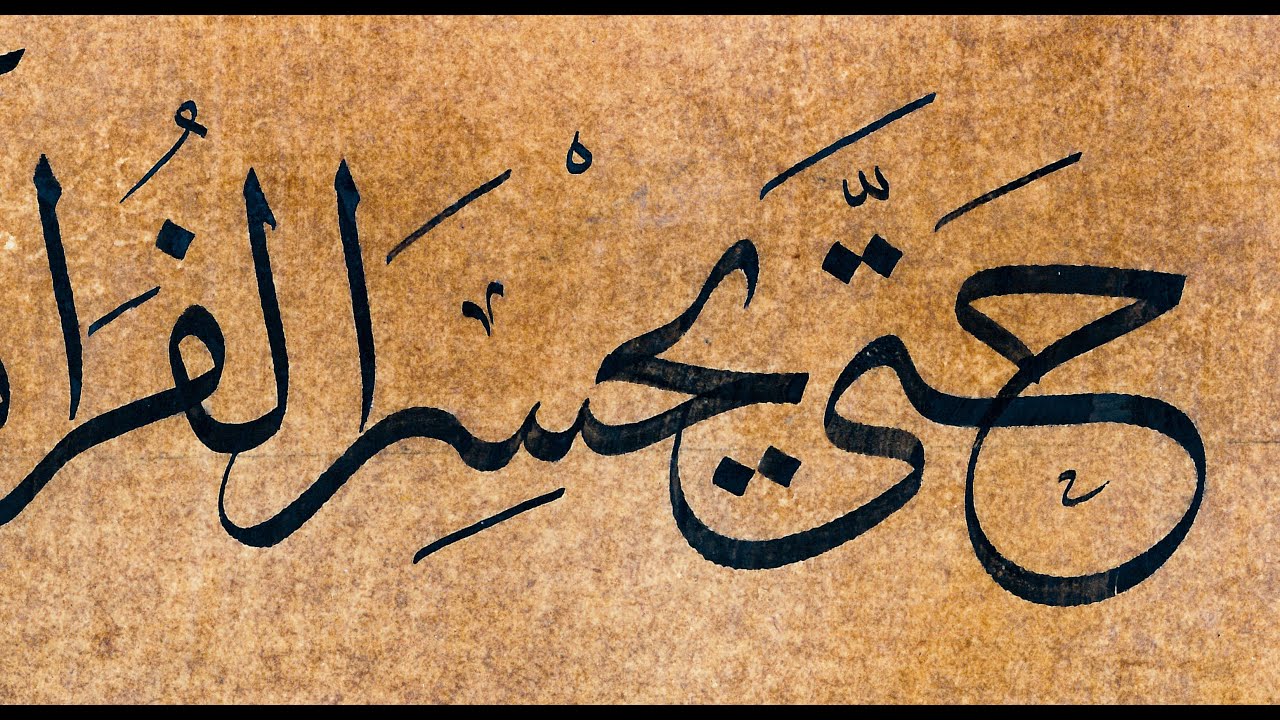 حَتَّى يَحْسِرَ الفُرَا